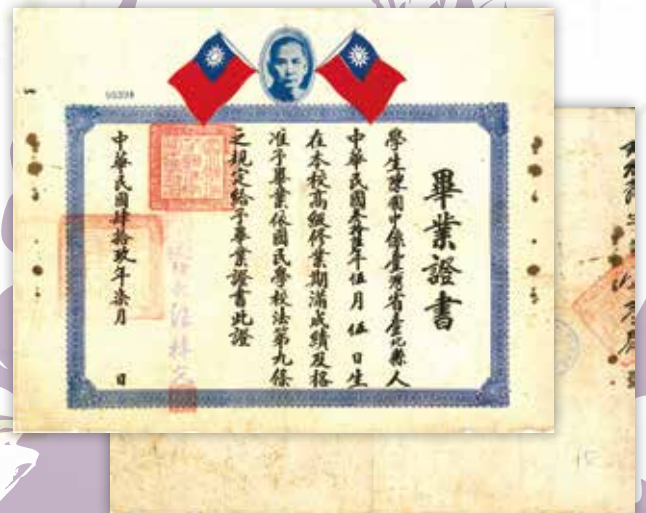 畢業證書
學生陳國中係臺灣省臺北縣人
中華民國年伍月伍日生
在本校高級修業期滿成績及格
准予畢業依國民學校法第九條
之規定給予畢業證書此證
中華民國肆拾玖年柒月 日
15